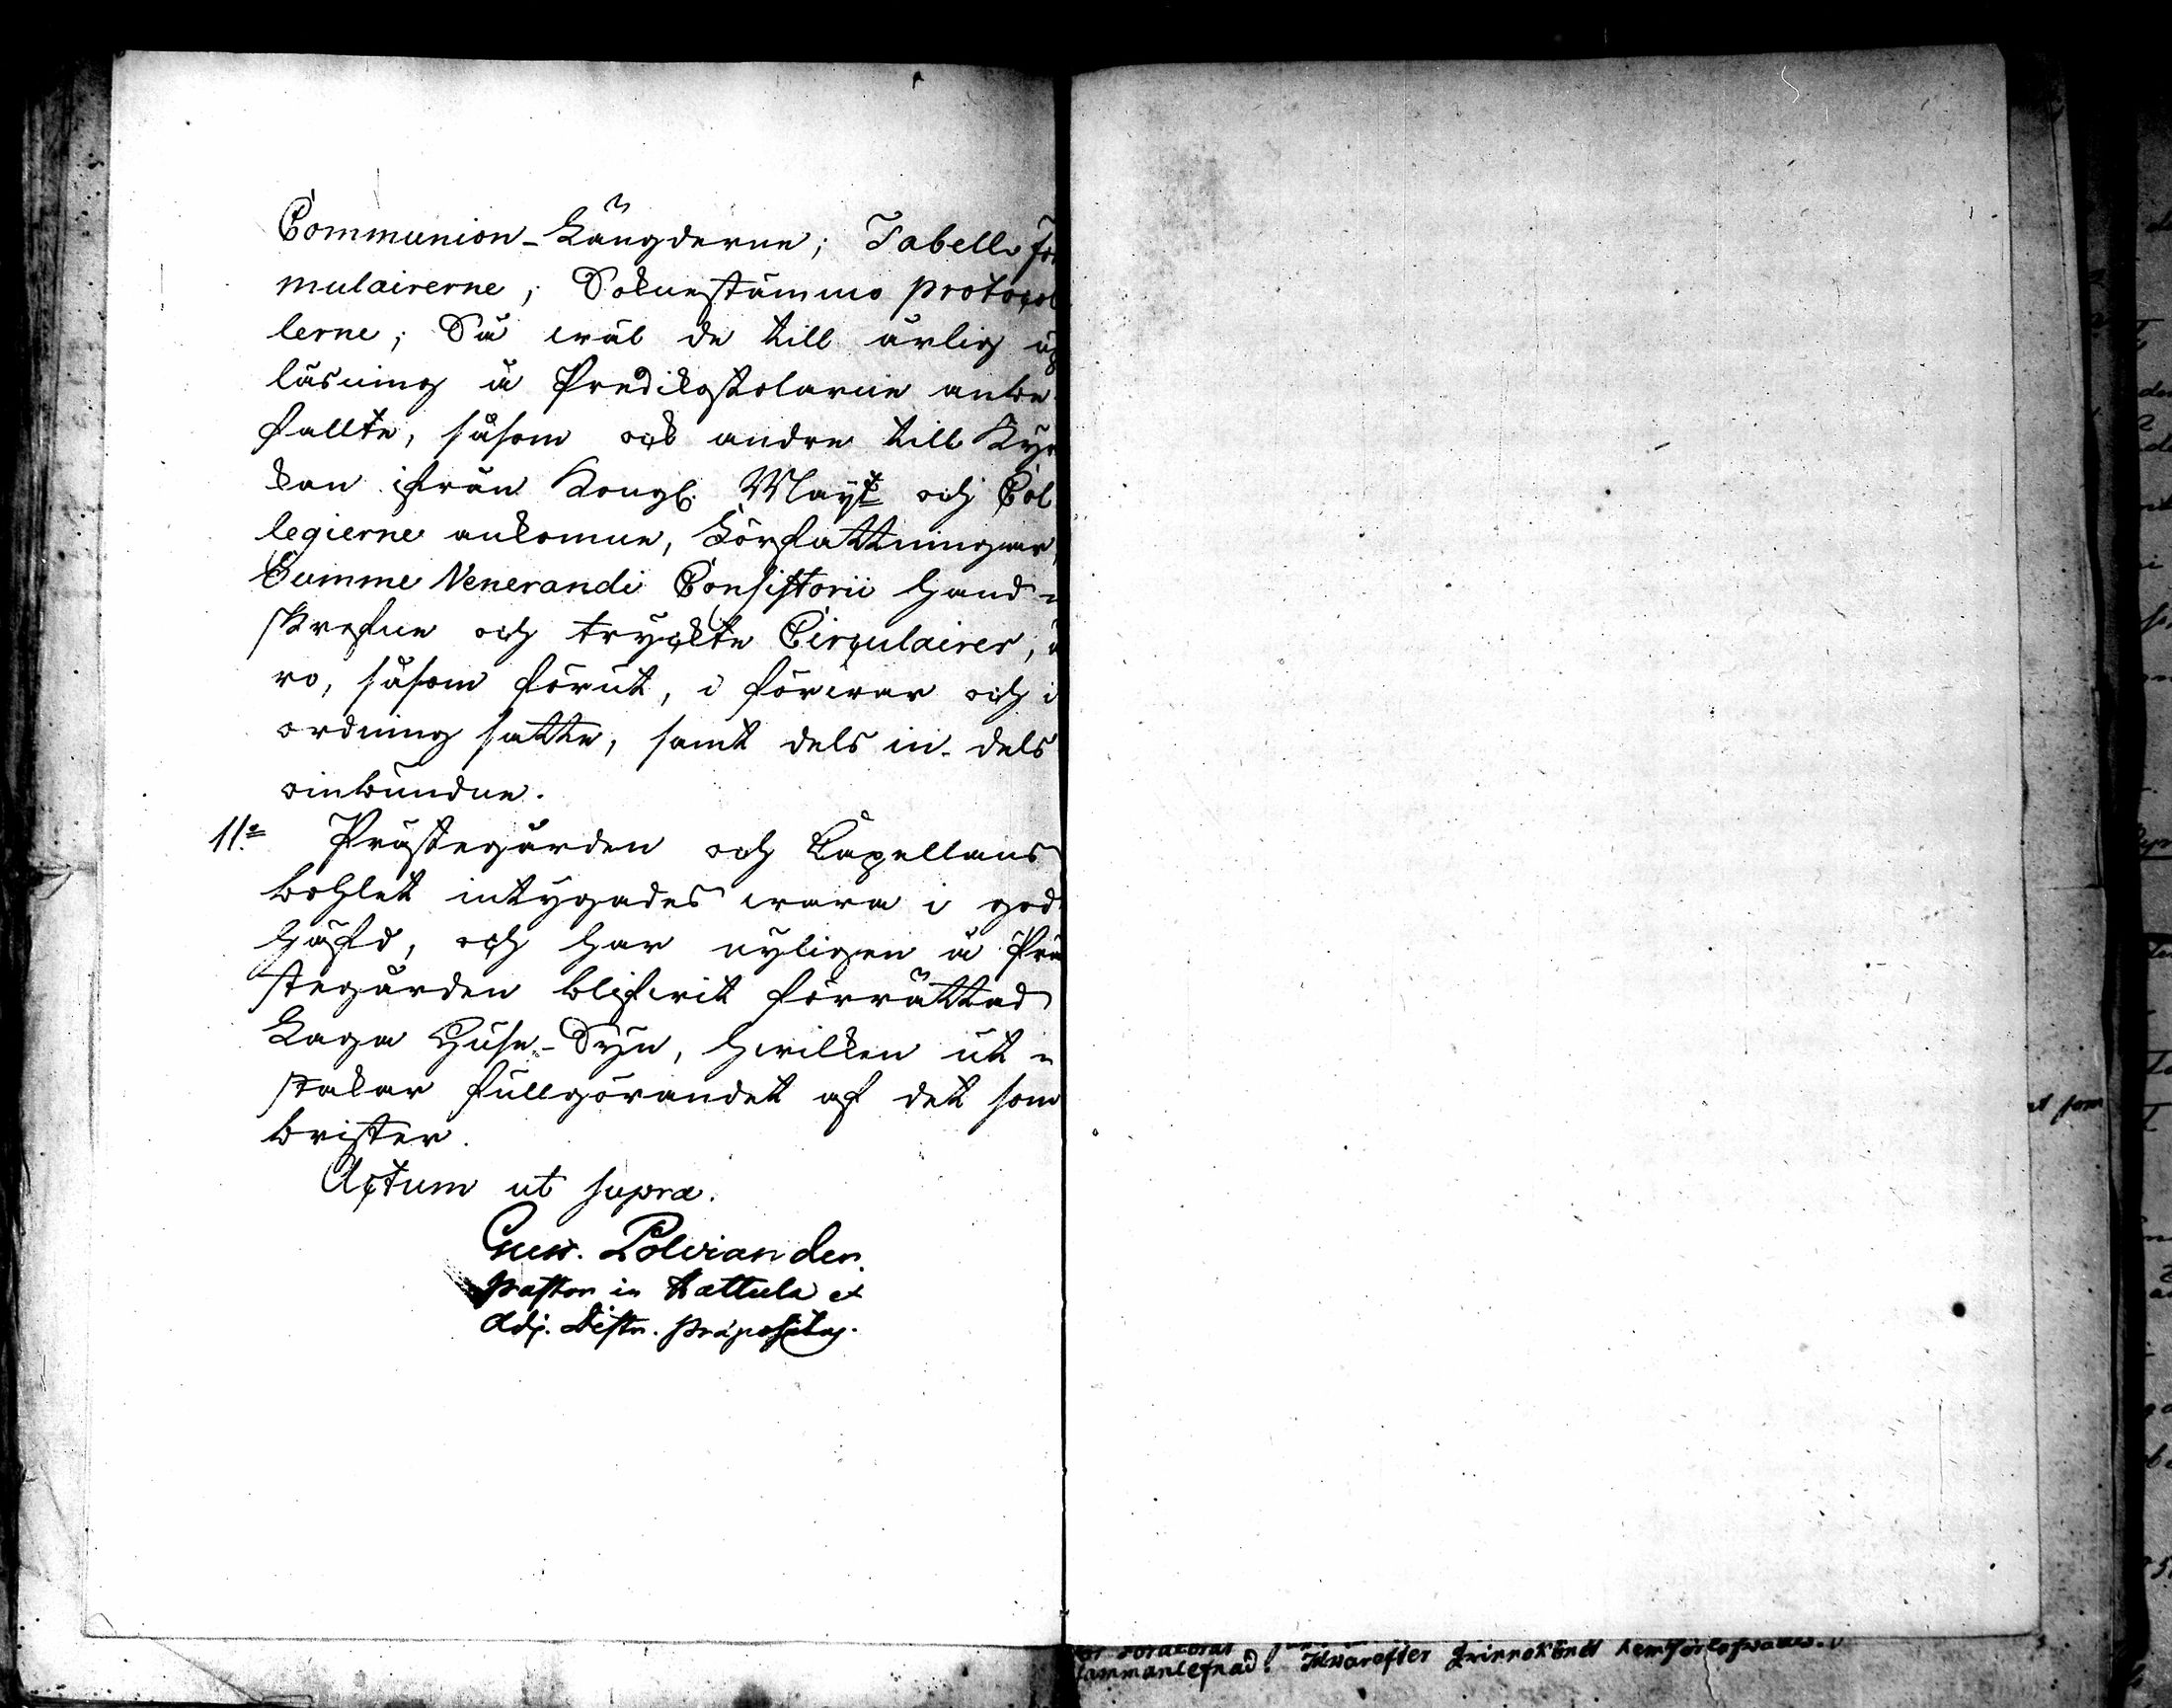 Communion-Längderne; Tabell for
mulairerne; Soknestämmo protocol
lerne; Så wäl de till årlig up
läsning å Predikostolarne anbe
fallte, såsom ock andre till Kyr
kan ifrån Kongl. Mayt och Col
legierne ankomne, Författningar,
Summe Venerandi Consistorii hand-
skrefne och tryckte Circulairer, ä
ro, såsom förut, i förwar och i
ordning satte, samt dels in- dels
oinbundne.
11o Prästegården och Capellans
bohlet intygades wara i god
häfd, och har nyligen å Prä
stegården blifwit förrättad
Laga Huse-Syn, hwilken ut-
stakar fullgörandet af det som
brister.
Actum ut supra.
Gust. Polviander.
Pastor in Hattula et
Adj. Distr. Præpositus.
et som
sammanlefnad. Hwarefter